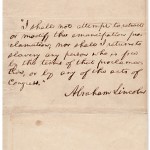 "I shall not attempt to retract
or modify the emancipation pro-
clamation; nor shall I return to
slavery any person who is free
by the terms of that proclama-
tion, or by any of the acts of
Congress."
Abraham Lincoln